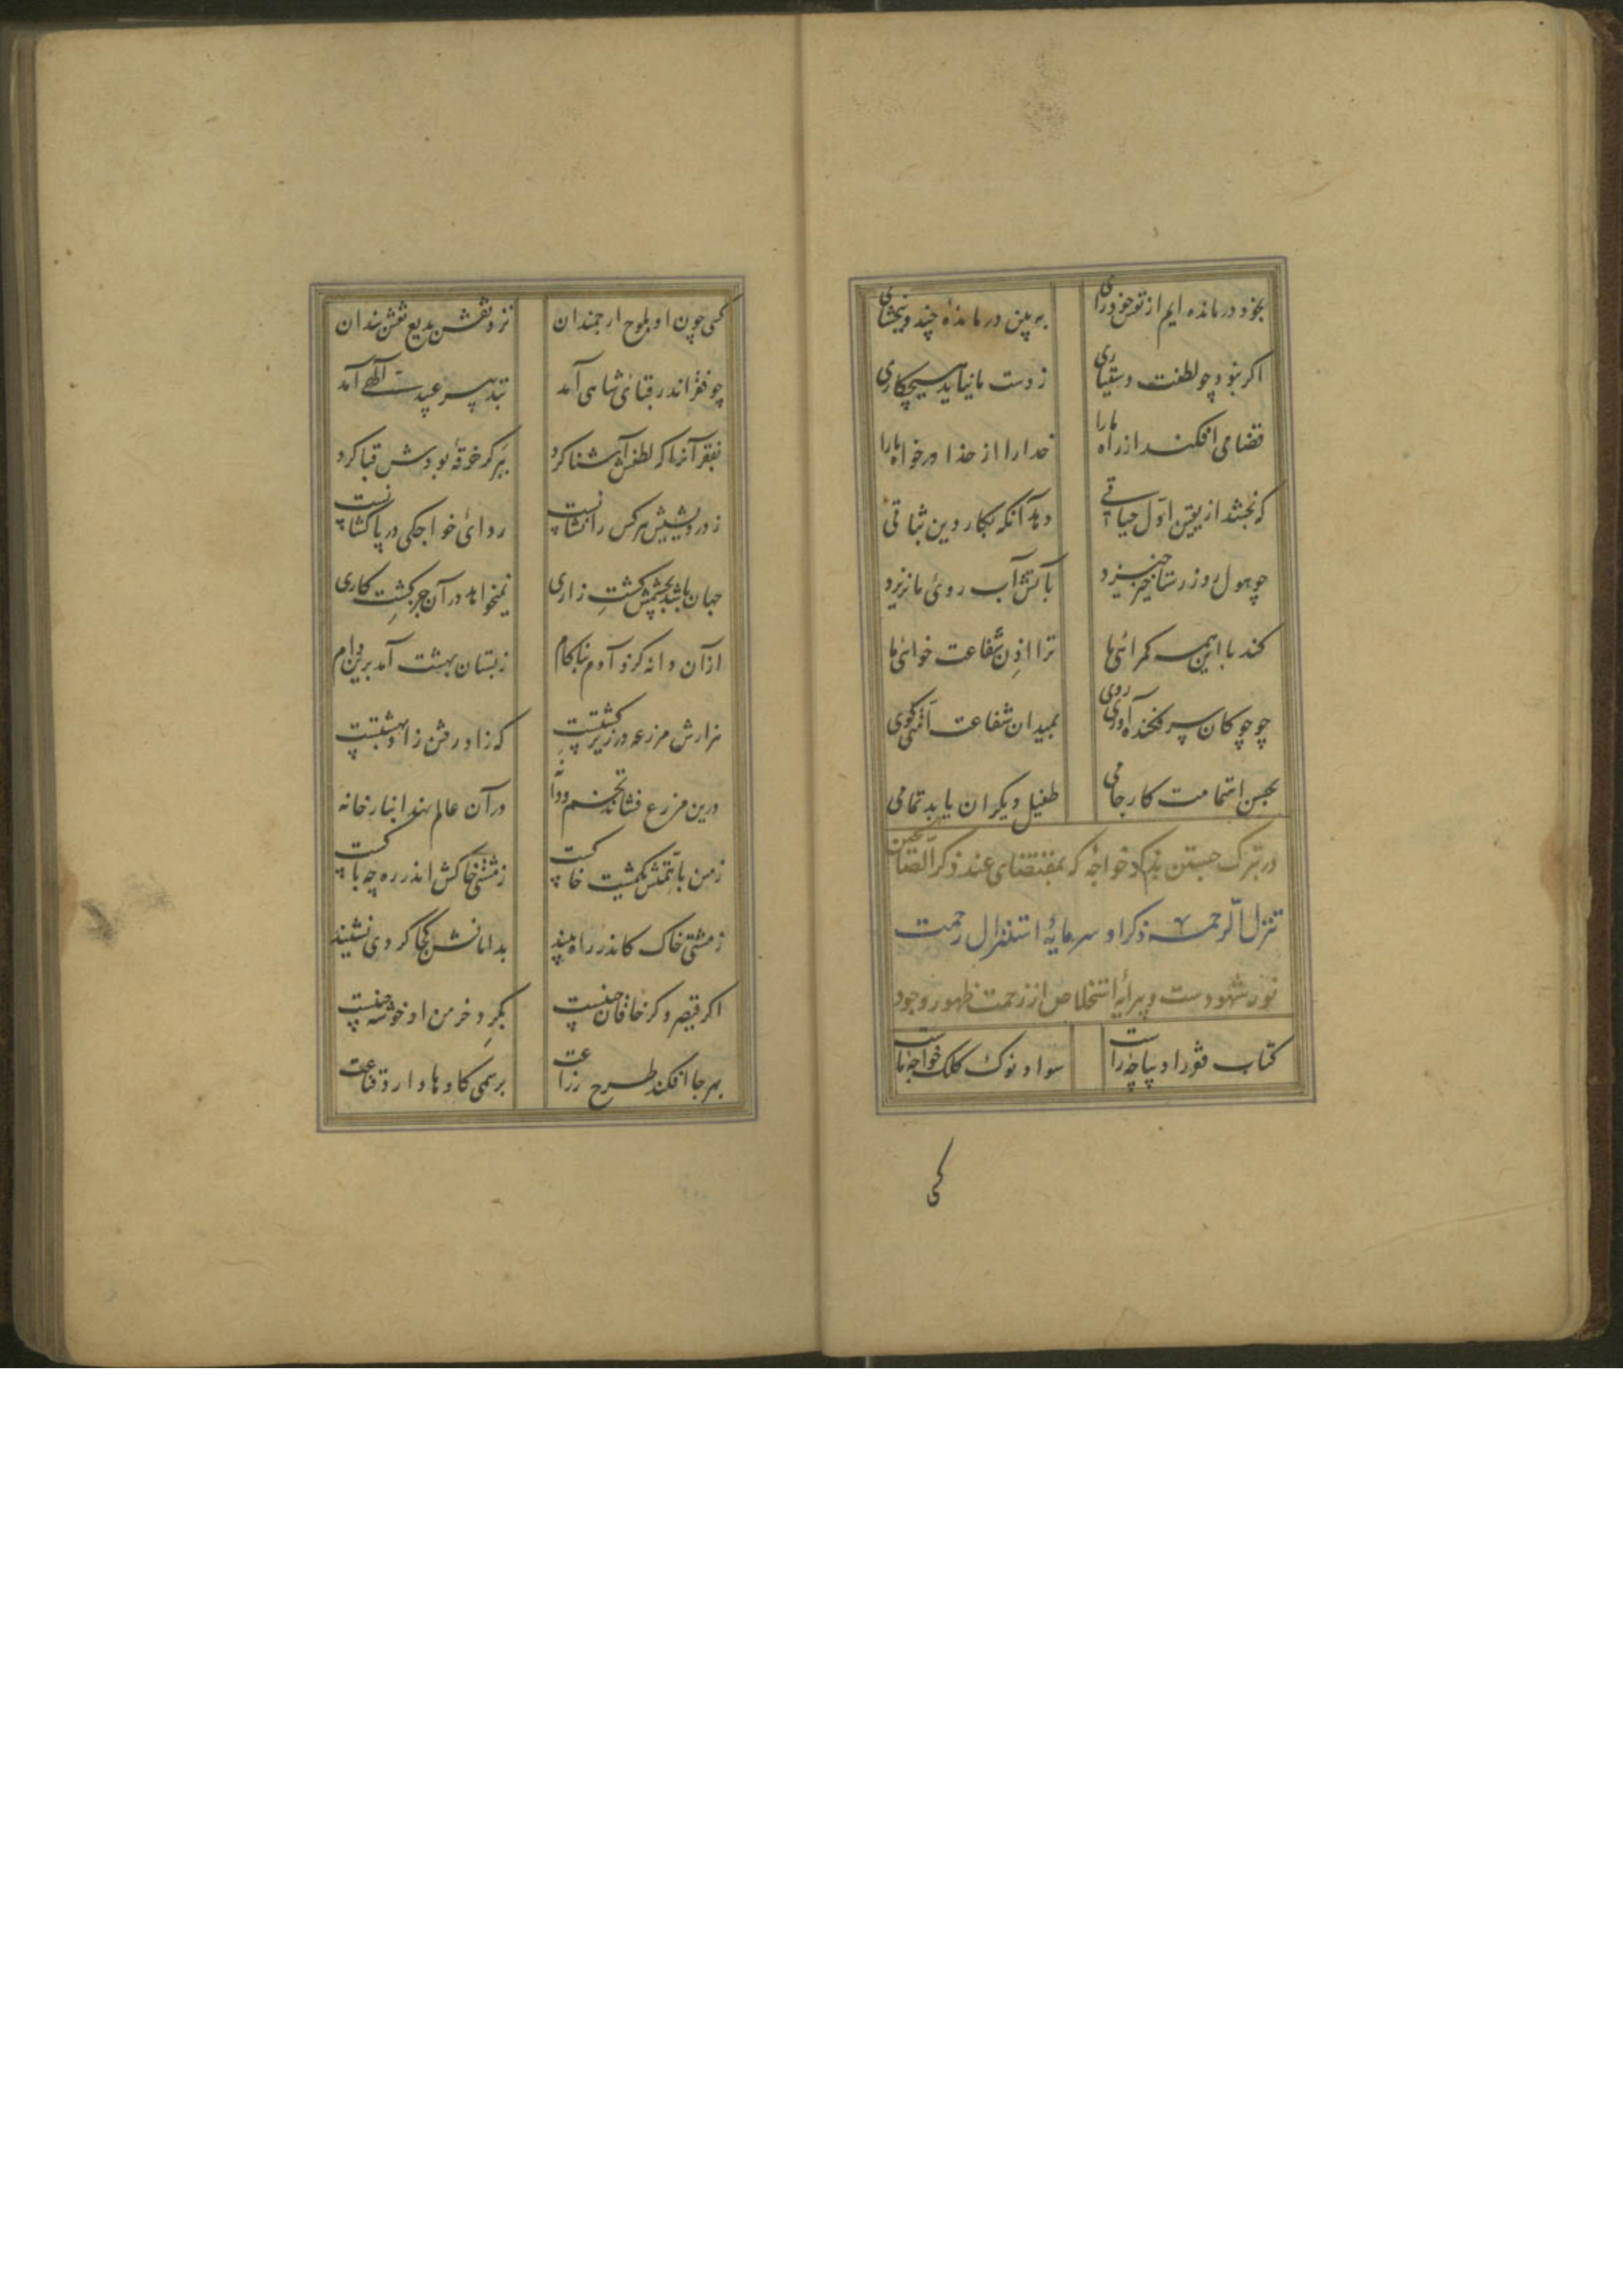 بخود در مانده ایم از تو خود رای به بین در ماندهٔ چند و ببخشای
اکر نبود چو لطفت دستیاری ز دست ما نیاید هیچکاری
قضا می افکند از راه ما را خدا را از خدا درخواه ما را
که بخشد از یقین اول حیاتی دهد آنکه بکار دین ثباتی
چو هول روز رستاخیز خیزد بآتش آب روی ما نریزد
کند با این همه کمراهی ما ترا اذن شفاعت خواهی ما
چو چوکان سر فکنده آوری روی بمیدان شفاعت امتی کوی
بحسن اهتمامت کار جامی طفیل دیکران یابد تمامی
در تبرک جستن بذکر خواجه که بمقتضای عند ذکر الصالحین
تنزل الرحمه ذکر او سرمایهٔ استنزال رحمت
نور شهودست و پیرایهٔ استخلاص از زحمت ظهور وجود
کتاب فقر را دیباچه راست سواد نوک کلک خواجهٔ ماست
کسی
کسی چون او بلوح ارجمندان نزد نقش بدیع نقش بندان
چو فقر اندر قبای شاهی آمد بتدبیر عبید اللهی آمد
بفقر آنرا که لطفش آشنا کرد ببر کر خرقهٔ بودش قبا کرد
ز درویشیش هر کس را نشانست ردای خواجکی در پا کشانست
جهان باشد بچشمش کشت زاری نمیخواهد در آن جز کشت کاری
از آن دانه کزو آدم بناکام ز بستان بهشت آمد برین دام
هزارش مزرعه در زیر کشتست که زاد رفتن راه بهشتست
درین مزرع فشاند تخم و دانه در آن عالم نهد انبار خانه
زمین با همتش یکمشت خاکست ز مشتی خاکش اندر ره چه باکست
ز مشتی خاک کاندر راه بیند بدامانش کجا کردی نشیند
اکر قیصر و کر خاقان چینست بکرد خرمن او خوشه چینست
بهر جا افکند طرح زراعت برسمی کاو ها دارد قناعت